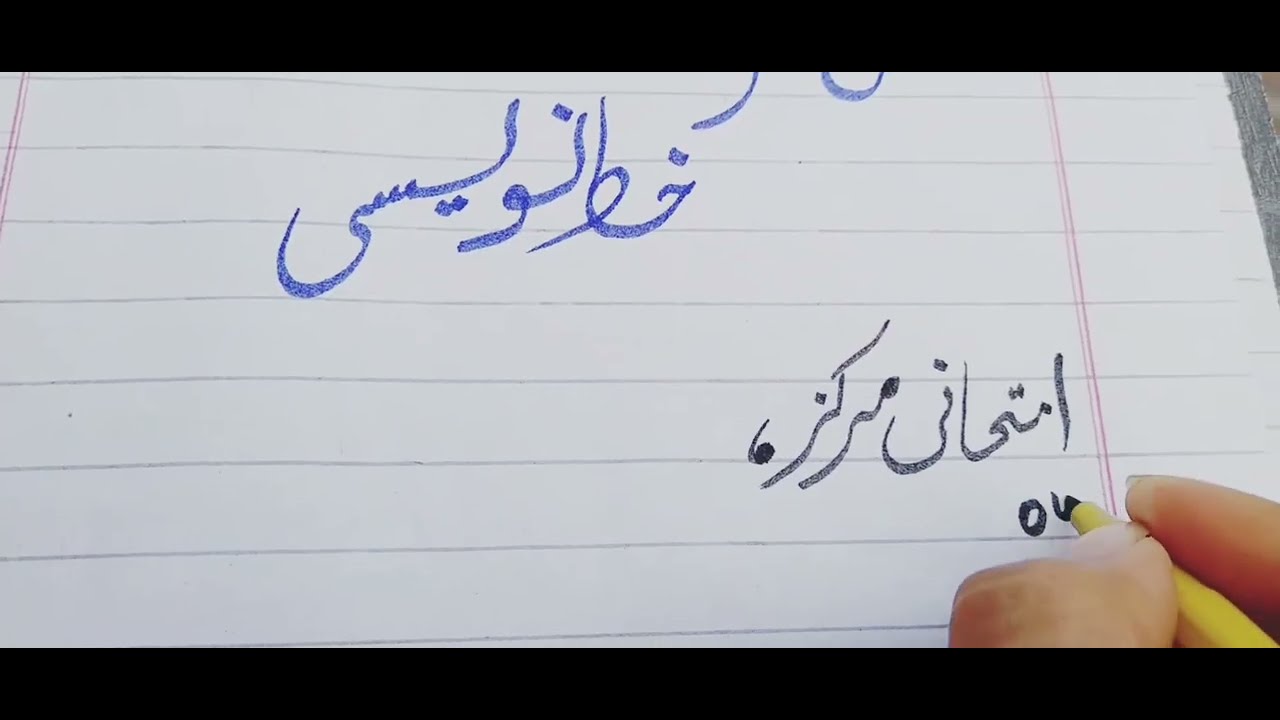 خط نویسی
امتحانی مرکز،